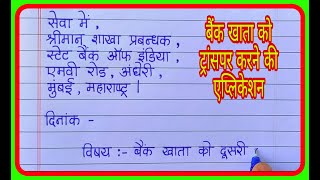 सेवा में ,
श्रीमान् शाखा प्रबन्धक ,
स्टेट बैंक ऑफ इंडिया ,
एमवी रोड, अंधेरी ,
मुंबई , महाराष्ट्र |
दिनांक -
विषय :- बैंक खाता को दूसरी
बैंक खाता को
ट्रांसपर करने की
एप्लिकेशन